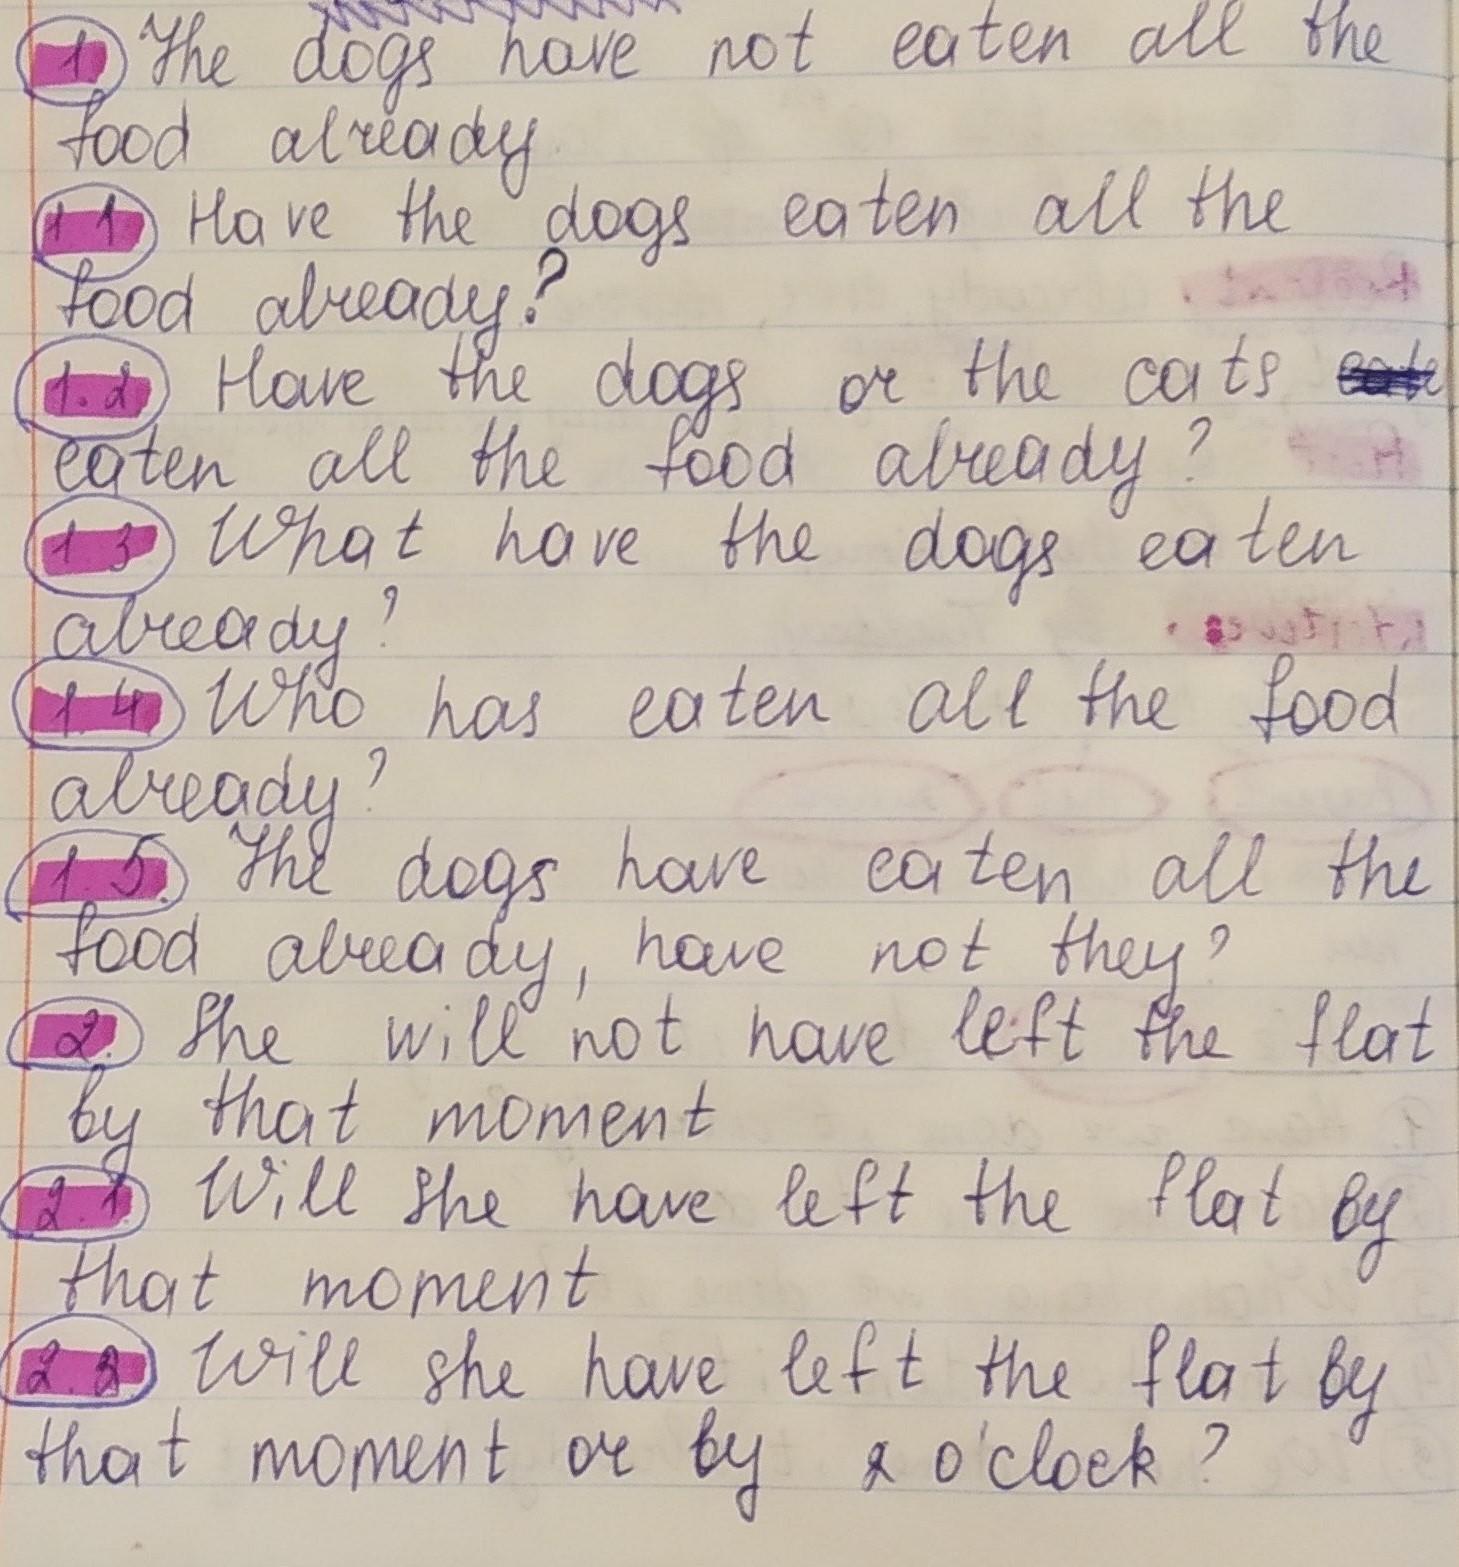 1 The dogs have not eaten all the
food already
1 1 Have the dogs eaten all the
food already?
1.2 Have the dogs or the cats
eaten all the food already?
1 3 What have the dogs eaten
already?
1.4 Who has eaten all the food
already?
1.5. The dogs have eaten all the
food already, have not they?
2. She will not have left the flat
by that moment
2.1. Will she have left the flat by
that moment
2.2 Will she have left the flat by
that moment or by o'clock?